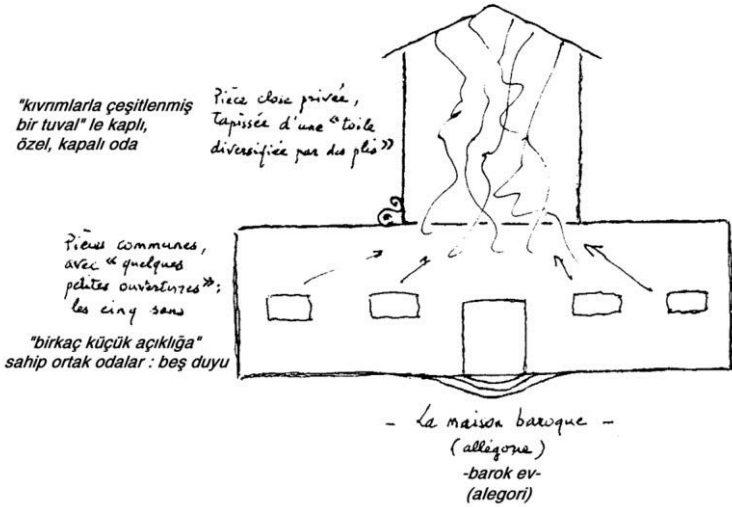 "kıvrımlarla çeşitlenmiş
bir tuval" le kaplı,
özel, kapalı oda
Pièce close privée,
tapissée d'une « toile
diversifiée par des plis »
Pièces communes,
avec « quelques
petites ouvertures » :
les cinq sens
"birkaç küçük açıklığa"
sahip ortak odalar : beş duyu
- La maison baroque -
(allégorie)
-barok ev-
(alegori)